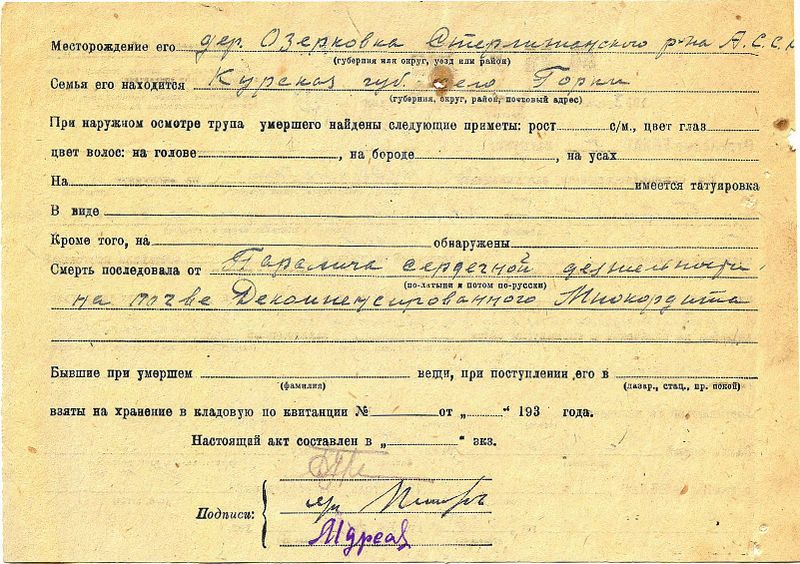 Месторождение его дер. Озерковка Стерлитаманского р-на А.С.С.
(губерния или округ, уезд или район)
Семья его находится Курская губ. село Горки
(губерния, округ, район, почтовый адрес)
При наружном осмотре трупа умершего найдены следующие приметы: рост с/м., цвет глаз
цвет волос: на голове , на бороде , на усах
На имеется татуировка
В виде
Кроме того, на обнаружены
Смерть последовала от Паралича сердечной деятельности
(по-латыни и потом по-русски)
на почве Декомпенсированного Миокордита
Бывшие при умершем вещи, при поступлении его в
(фамилия) (лазар., стац., пр. покой)
взяты на хранение в кладовую по квитанции № от „ “ 193 года.
Настоящий акт составлен в „ “ экз.
Подписи: